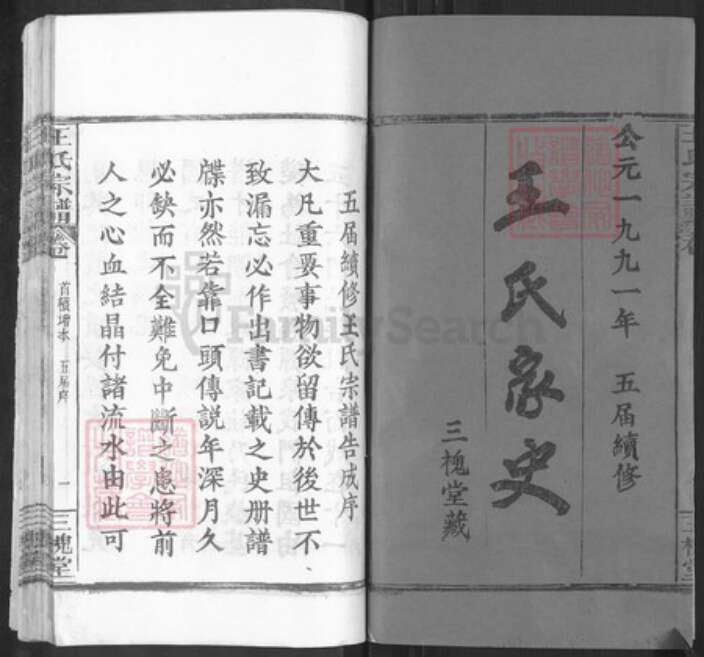 公元一九九一年 五届續修
王氏家史
三槐堂藏
五届續修王氏宗譜告成序
大凡重要事物欲留傳於後世不
致漏忘必作出書記載之史册譜
牒亦然若靠口頭傳説年深月久
必缺而不全難免中斷之患將前
人之心血結晶付諸流水由此可
王氏宗譜
五届序
一
三槐堂
FamilySearch